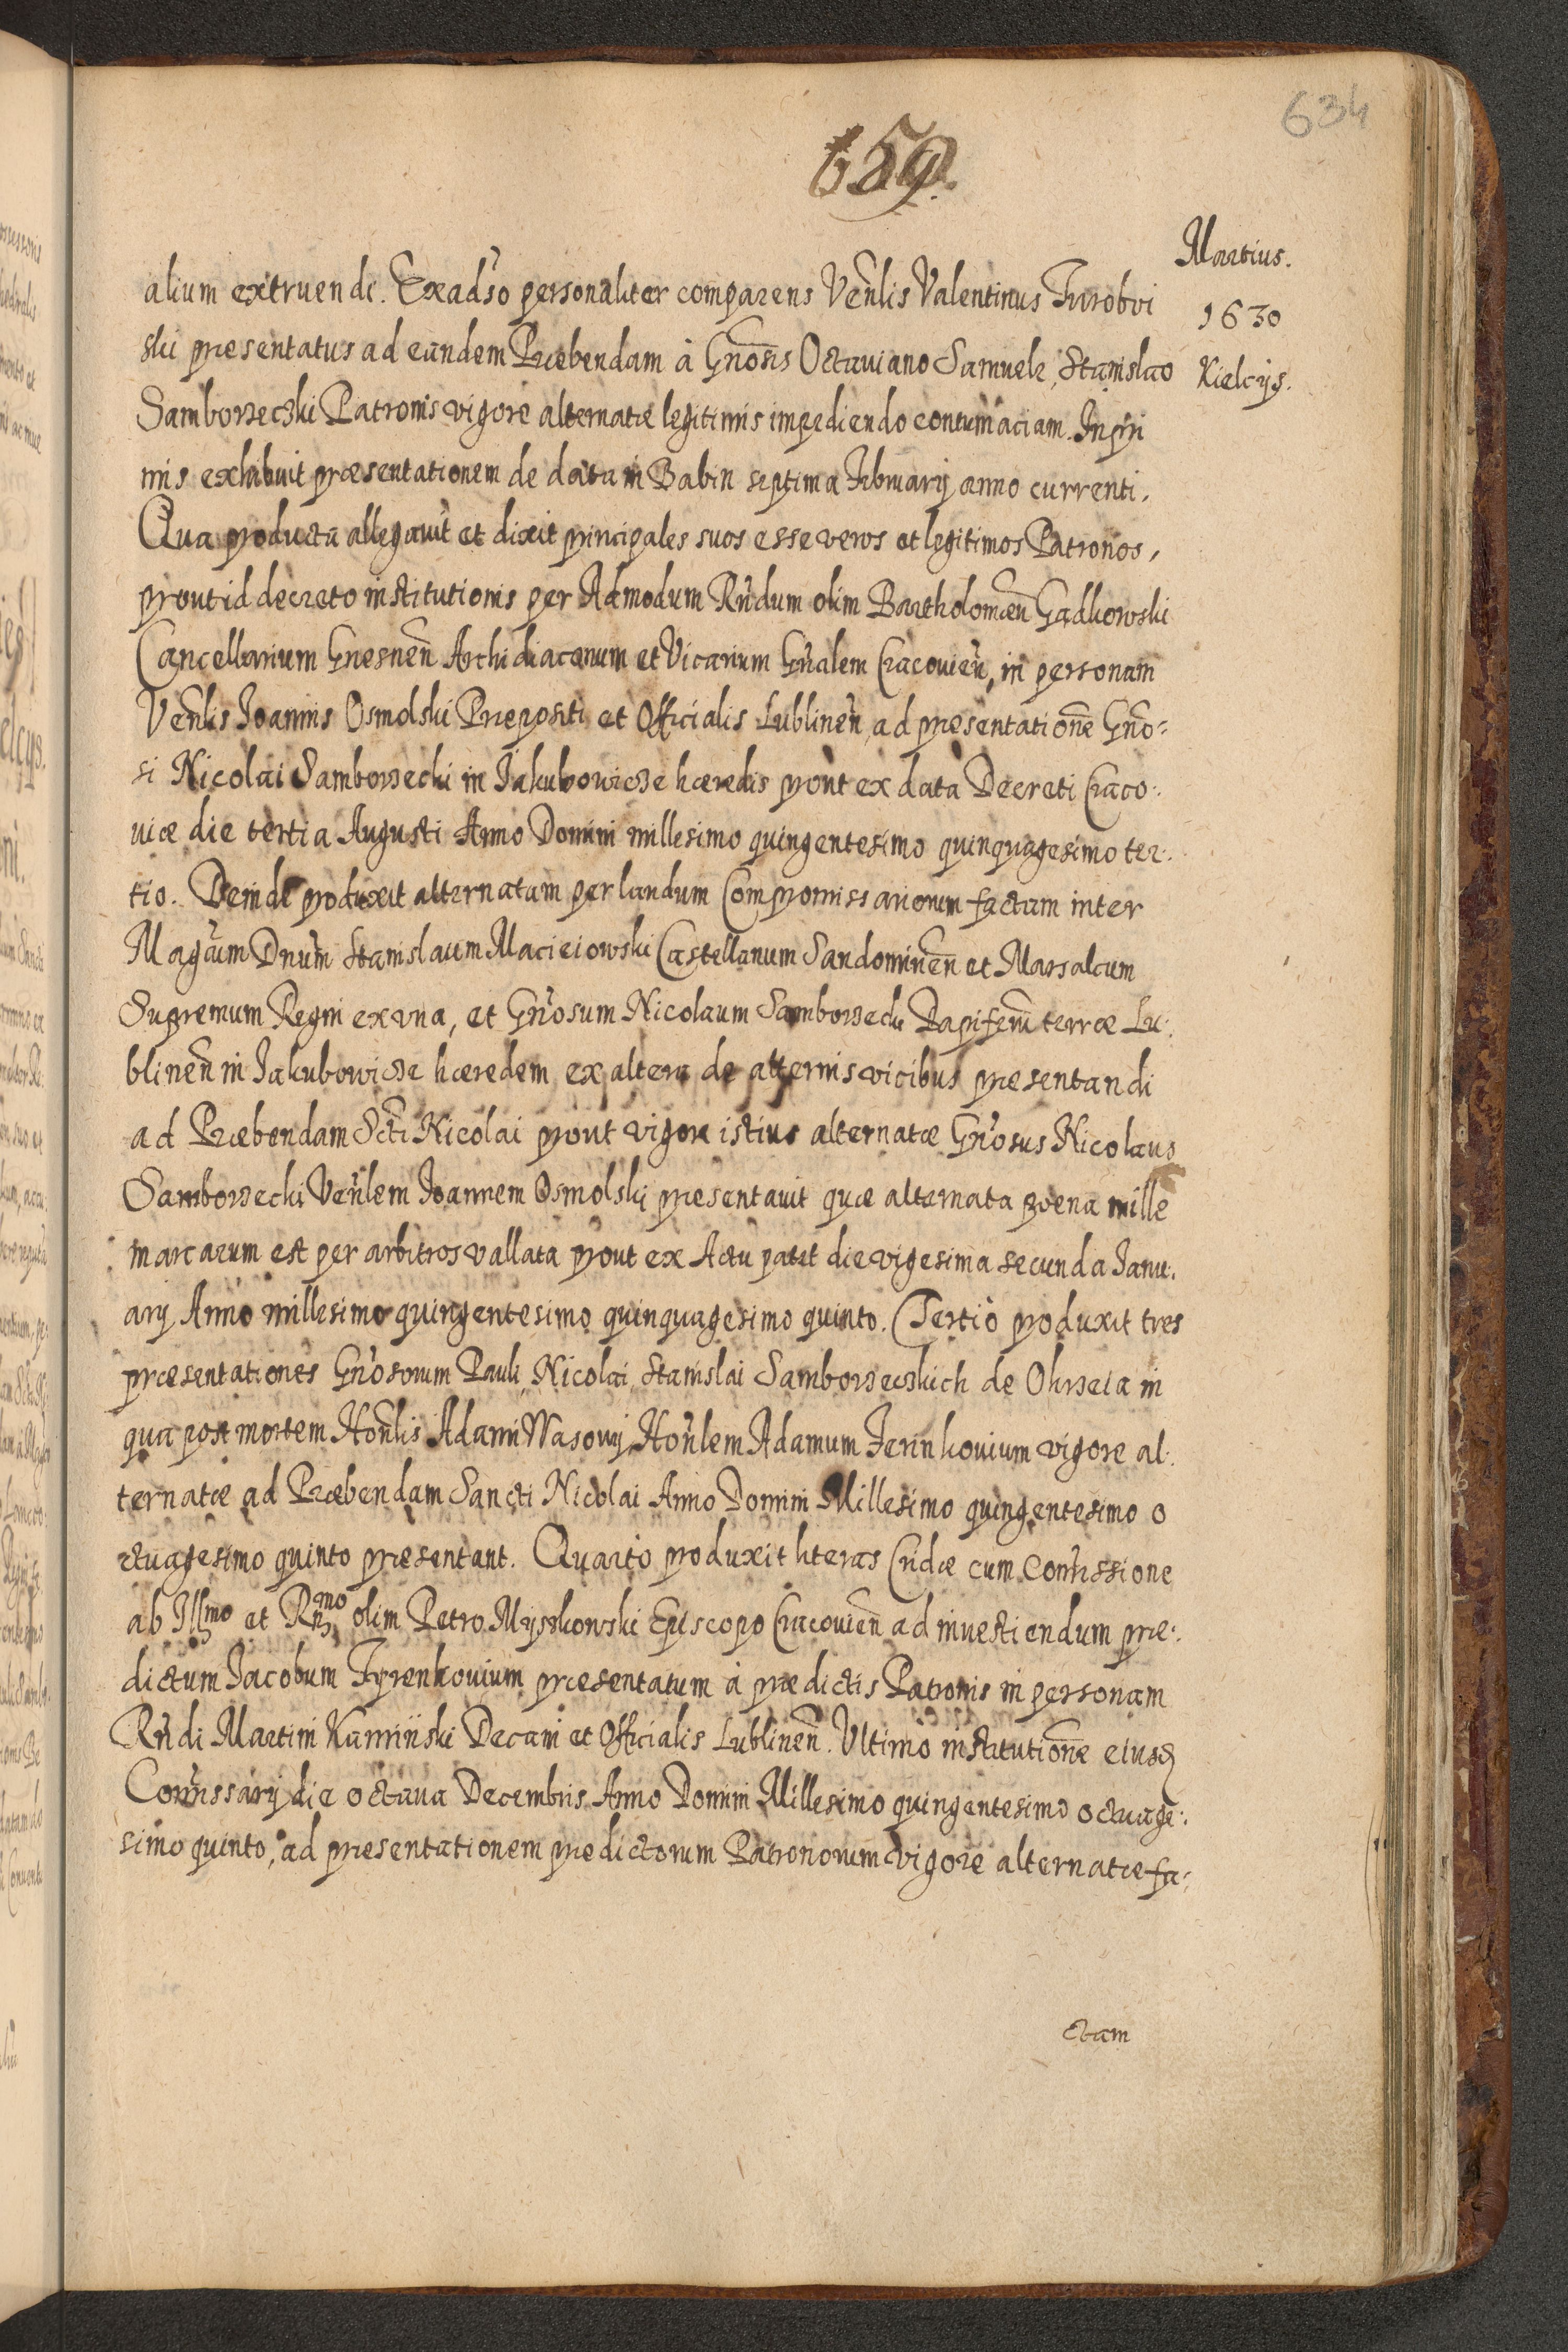 634
659.
Martius.
1630
Kielcijs.
alium extruendi. Ex adso personaliter comparens Venlis Valentinus Turoboi
ski presentatus ad eandem Præbendam à Gnosis Octauiano Samuele, Stanislao
Samborzecski Patronis vigore alternatæ legitimis impediendo contumaciam. In pri
mis exhibuit præsentationem de data in Babin septima Februarij anno currenti.
Qua producta allegauit et dixit principales suos esse veros et legitimos Patronos,
prout id decreto institutionis per Admodum Rndum olim Bartholomeũ Gadkowski
Cancellarium Gnesneñ Archidiaconum et Vicarium Gnalem Cracouieñ, in personam
Venlis Joannis Osmolski Præpositi et Officialis Lublineñ, ad presentationẽ Gno=
si Nicolai Samborzecki in Jakubowicze hæredis prout ex data Decreti Craco:
uiæ die tertia Augusti Anno Domini millesimo quingentesimo quinquagesimo ter:
tio. Deinde produxit alternatam per laudum Compromissariorum factam inter
Magcum Dnum Stanislaum Macieiowski Castellanum Sandomineñ et Marsalcum
Supremum Regni ex vna, et Gnosum Nicolaum Samborzecki Dapiferũ terræ Lu:
blineñ in Jakubowicze hæredem ex altera de alternis vicibus presentandi
ad Præbendam Scti Nicolai prout vigore istius alternatæ Gnosus Nicolaus
Samborzecki Venlem Joannem Osmolski presentauit quæ alternata poena mille
marcarum est per arbitros vallata prout ex Actu patet die vigesima secunda Janu:
arij Anno millesimo quingentesimo quinquagesimo quinto. Tertio produxit tres
præsentationes Gnosorum Pauli, Nicolai, Stanislai Samborzecskich de in
qua post mortem Honlis Adami Wasouij, Honlem Adamum vigore al:
ternatæ ad Præbendam Sancti Nicolai Anno Domini Millesimo quingentesimo o
ctuagesimo quinto presentant. Quarto produxit literas Cridæ cum Comissione
ab Illmo et Rndmo olim Petro Myszkowski Episcopo Cracouieñ ad inuestiendum præ:
dictum Jacobum Fyrenkouium præsentatum à prædictis Patronis in personam
Rndi Martini Kamiński Decani et Officialis Lublineñ. Vltimo institutionẽ eiusd
Comissarij die octaua Decembris Anno Domini Millesimo quingentesimo octuage:
simo quinto, ad presentationem predictorum Patronorum vigore alternatæ fa:
ctam